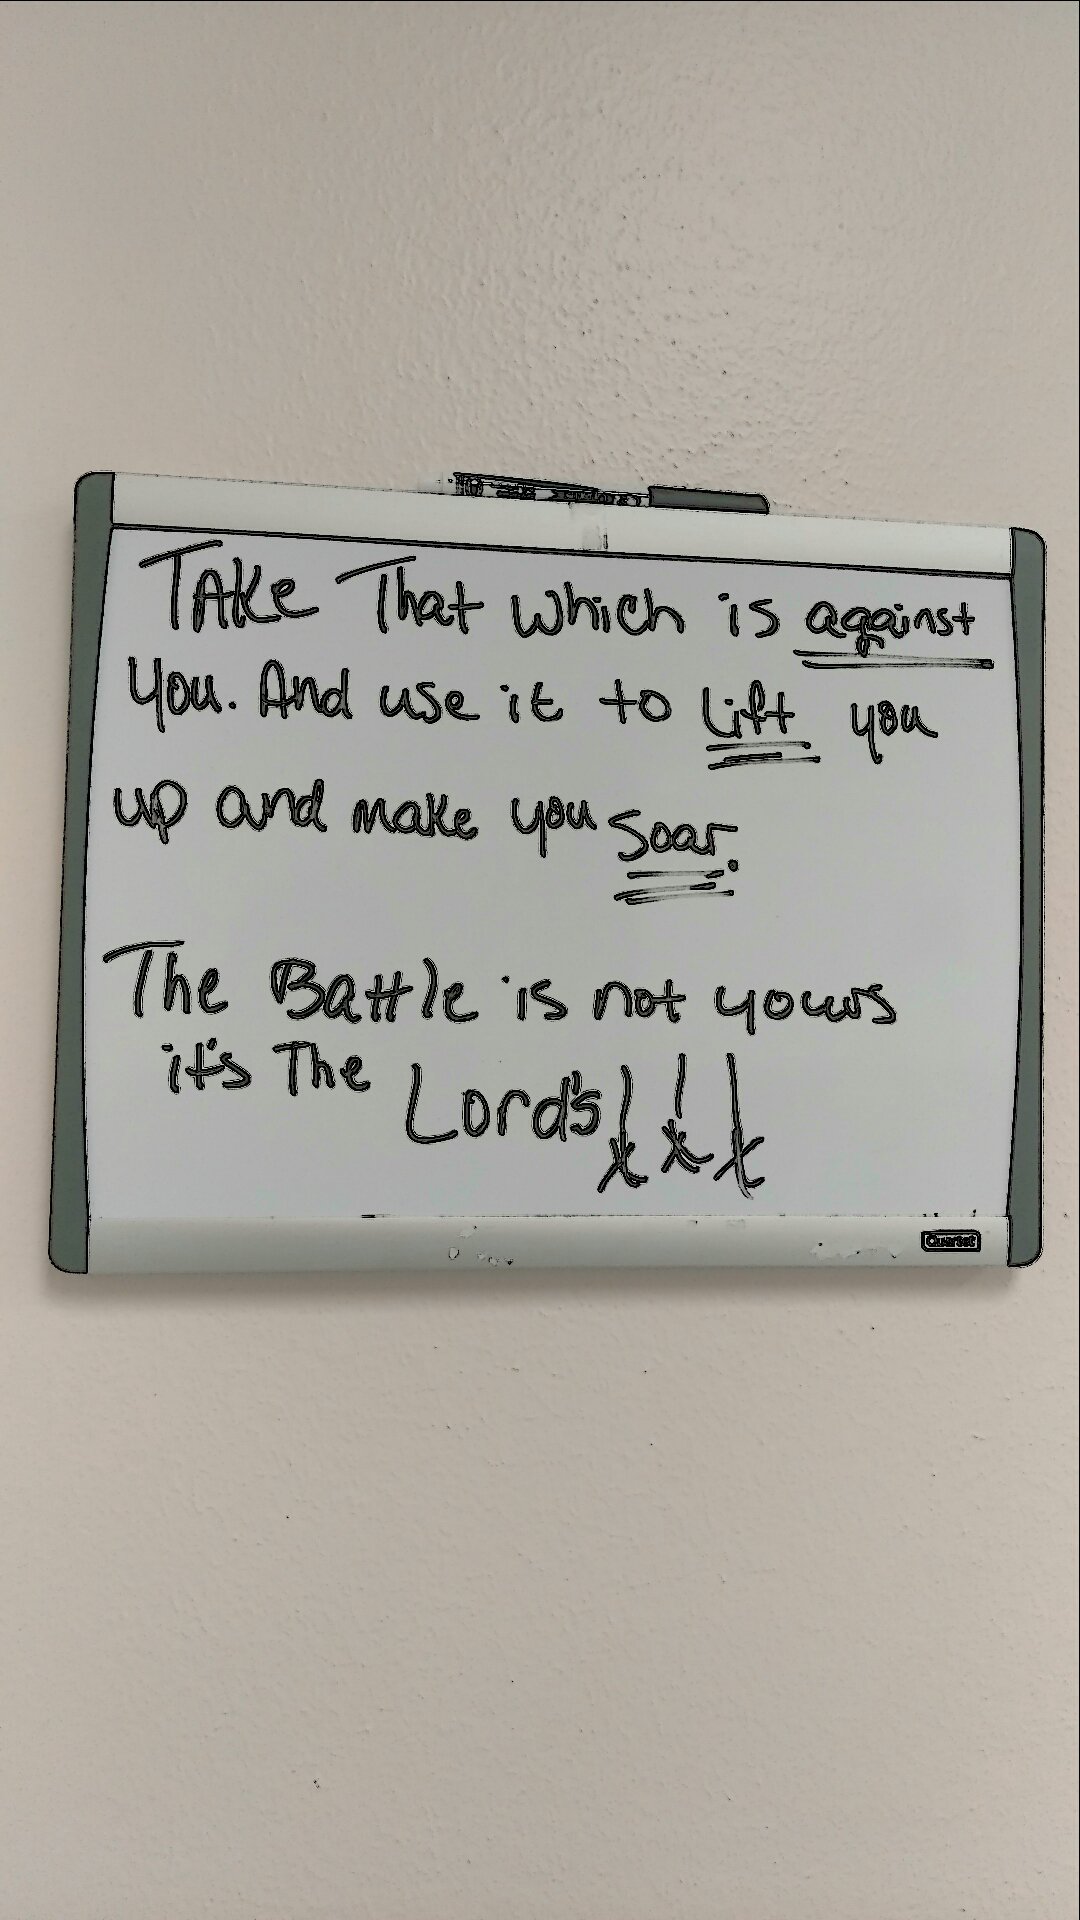 TAKe That which is against
You. And use it to Lift you
up and make you soar.
The Battle is not yours
it's The Lord's!!!
Quartet